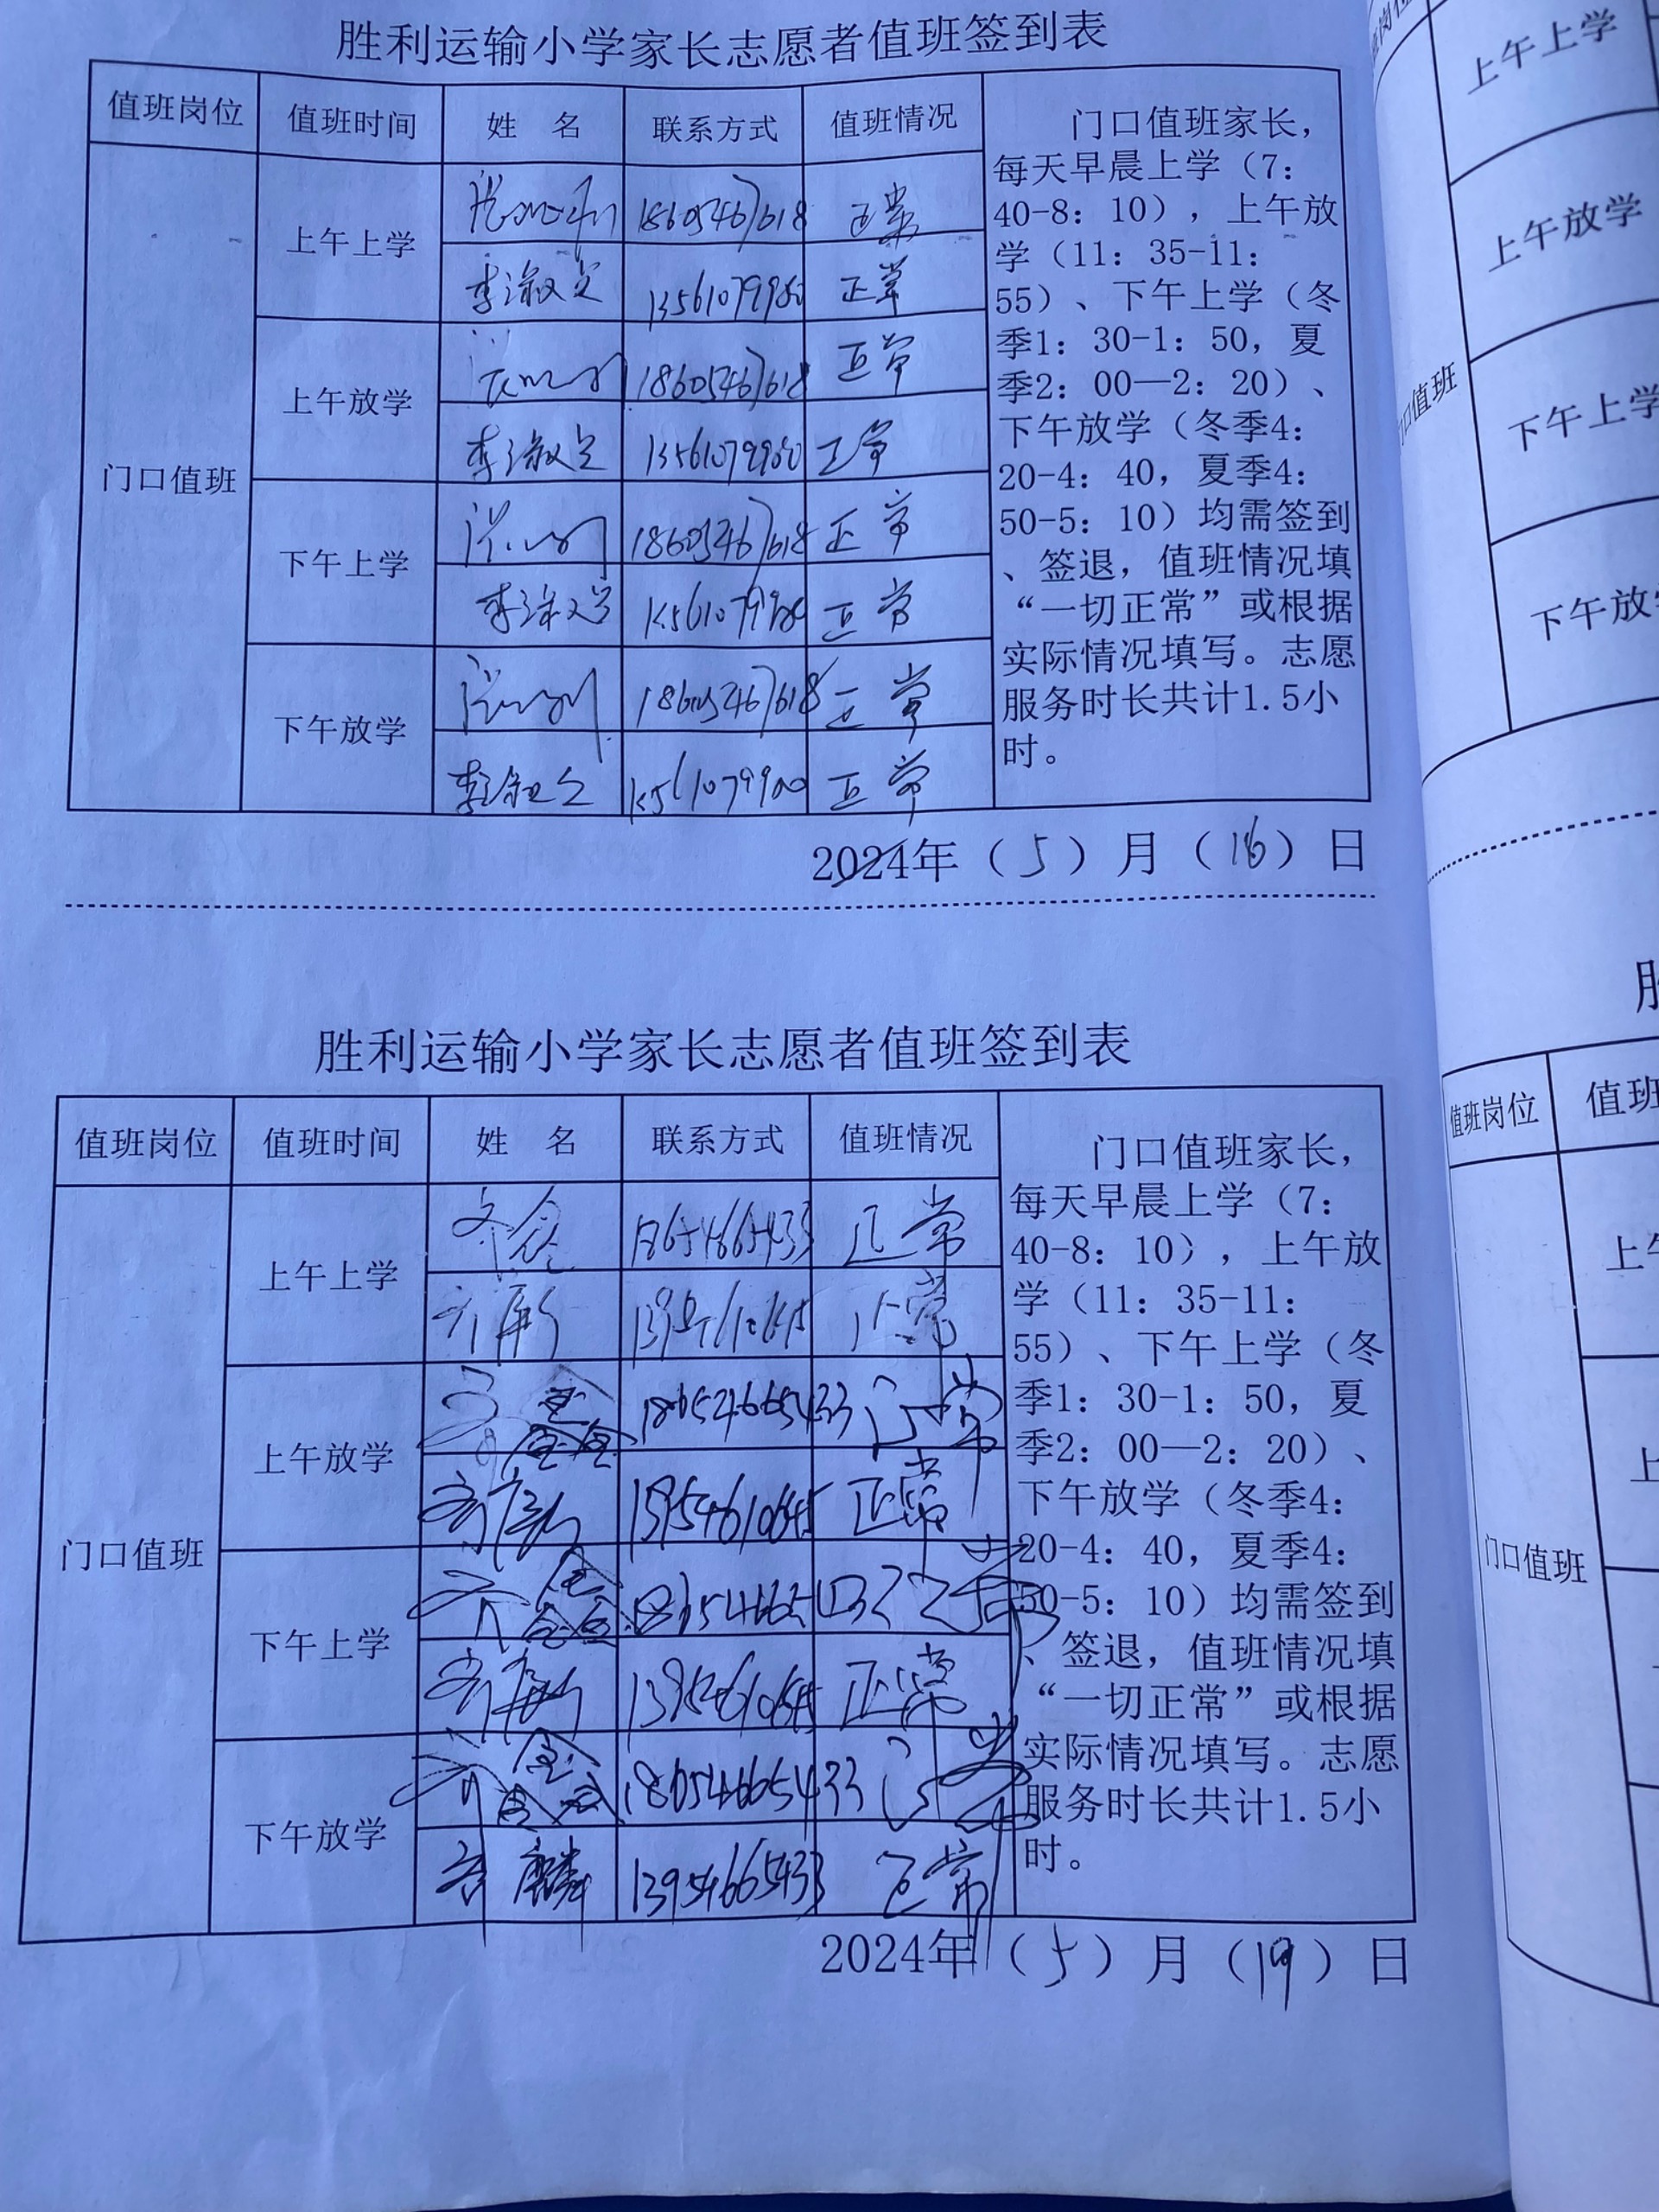 胜利运输小学家长志愿者值班签到表
值班岗位 值班时间 姓 名 联系方式 值班情况
门口值班
上午上学 18605467618 正常
李淑文 13561079980 正常
上午放学 18605467618 正常
李淑文 13561079980 正常
下午上学 18605467618 正常
李淑文 13561079980 正常
下午放学 18605467618 正常
李淑文 13561079980 正常
门口值班家长，
每天早晨上学（7：
40-8：10），上午放
学（11：35-11：
55）、下午上学（冬
季1：30-1：50，夏
季2：00—2：20）、
下午放学（冬季4：
20-4：40，夏季4：
50-5：10）均需签到
、签退，值班情况填
“一切正常”或根据
实际情况填写。志愿
服务时长共计1.5小
时。
2024年（5）月（16）日
胜利运输小学家长志愿者值班签到表
值班岗位 值班时间 姓 名 联系方式 值班情况
门口值班
上午上学 18654665433 正常
13954610645 正常
上午放学 齐鑫 18654665433 正常
齐麟 13954610645 正常
下午上学 齐鑫 18654665433 正常
齐麟 13954610645 正常
下午放学 齐鑫 18654665433 正常
齐麟 13954665433 正常
门口值班家长，
每天早晨上学（7：
40-8：10），上午放
学（11：35-11：
55）、下午上学（冬
季1：30-1：50，夏
季2：00—2：20）、
下午放学（冬季4：
20-4：40，夏季4：
50-5：10）均需签到
、签退，值班情况填
“一切正常”或根据
实际情况填写。志愿
服务时长共计1.5小
时。
2024年（5）月（19）日
上午上学
上午放学
下午上学
下午放
口值班
值班岗位 值班
上午
上
门口值班